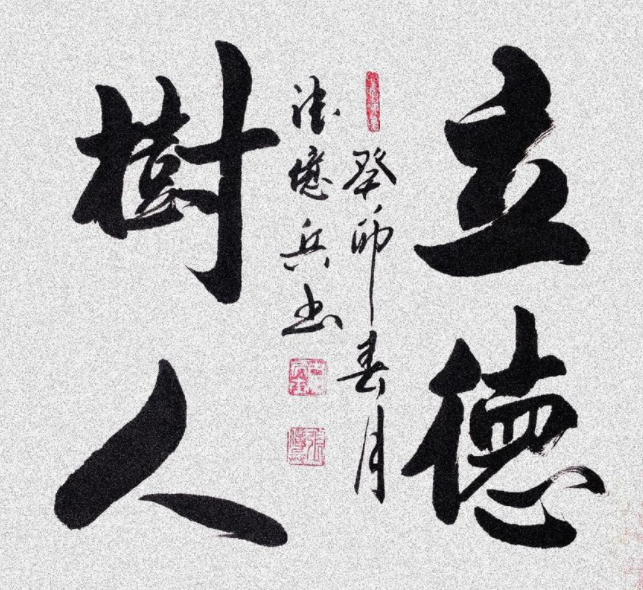 立德
樹人
癸卯春月
張憶兵书